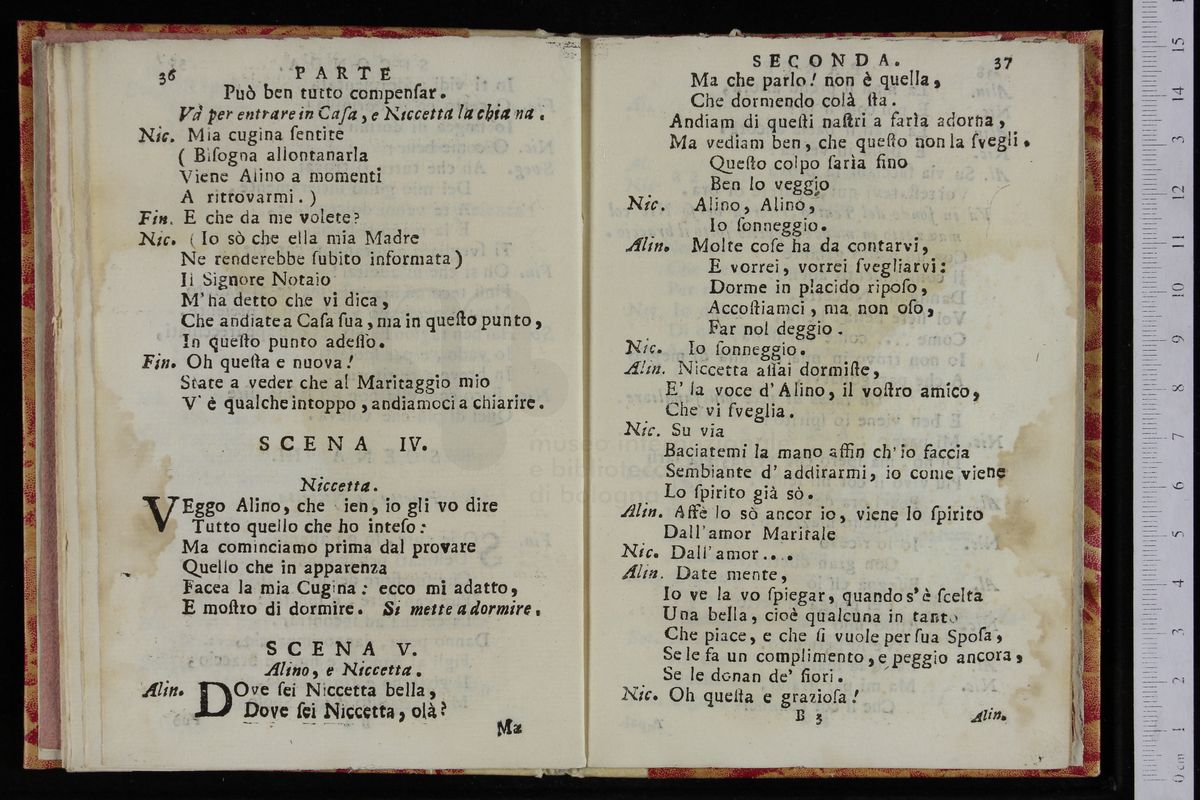 36 PARTE
Può ben tutto compenſar.
Và per entrare in Caſa, e Niccetta la chiana.
Nic. Mia cugina ſentite
( Biſogna allontanarla
Viene Alino a momenti
A ritrovarmi. )
Fin. E che da me volete?
Nic. ( Io sò che ella mia Madre
Ne renderebbe ſubito informata )
Il Signore Notaio
M'ha detto che vi dica,
Che andiate a Caſa ſua, ma in queſto punto,
In queſto punto adeſſo.
Fin. Oh queſta e nuova!
State a veder che al Maritaggio mio
V' è qualche intoppo, andiamoci a chiarire.
SCENA IV.
Niccetta.
VEggo Alino, che ien, io gli vo dire
Tutto quello che ho inteſo:
Ma cominciamo prima dal provare
Quello che in apparenza
Facea la mia Cugina: ecco mi adatto,
E moſtro di dormire. Si mette a dormire.
SCENA V.
Alino, e Niccetta.
Alin. DOve ſei Niccetta bella,
Dove ſei Niccetta, olà?
Ma
SECONDA. 37
Ma che parlo! non è quella,
Che dormendo colà ſta.
Andiam di queſti naſtri a farla adorna,
Ma vediam ben, che queſto non la ſvegli.
Queſto colpo ſaria fino
Ben lo veggio
Nic. Alino, Alino,
Io ſonneggio.
Alin. Molte coſe ha da contarvi,
E vorrei, vorrei ſvegliarvi:
Dorme in placido ripoſo,
Accoſtiamci, ma non oſo,
Far nol deggio.
Nic. Io ſonneggio.
Alin. Niccetta aſſai dormiſte,
E' la voce d' Alino, il voſtro amico,
Che vi ſveglia.
Nic. Su via
Baciatemi la mano affin ch' io faccia
Sembiante d' addirarmi, io come viene
Lo ſpirito già sò.
Alin. Affè lo sò ancor io, viene lo ſpirito
Dall'amor Maritale
Nic. Dall'amor....
Alin. Date mente,
Io ve la vo ſpiegar, quando s'è ſcelta
Una bella, cioè qualcuna in tanto
Che piace, e che ſi vuole per ſua Spoſa,
Se le fa un complimento, e peggio ancora,
Se le donan de' fiori.
Nic. Oh queſta e grazioſa!
B 3 Alin.